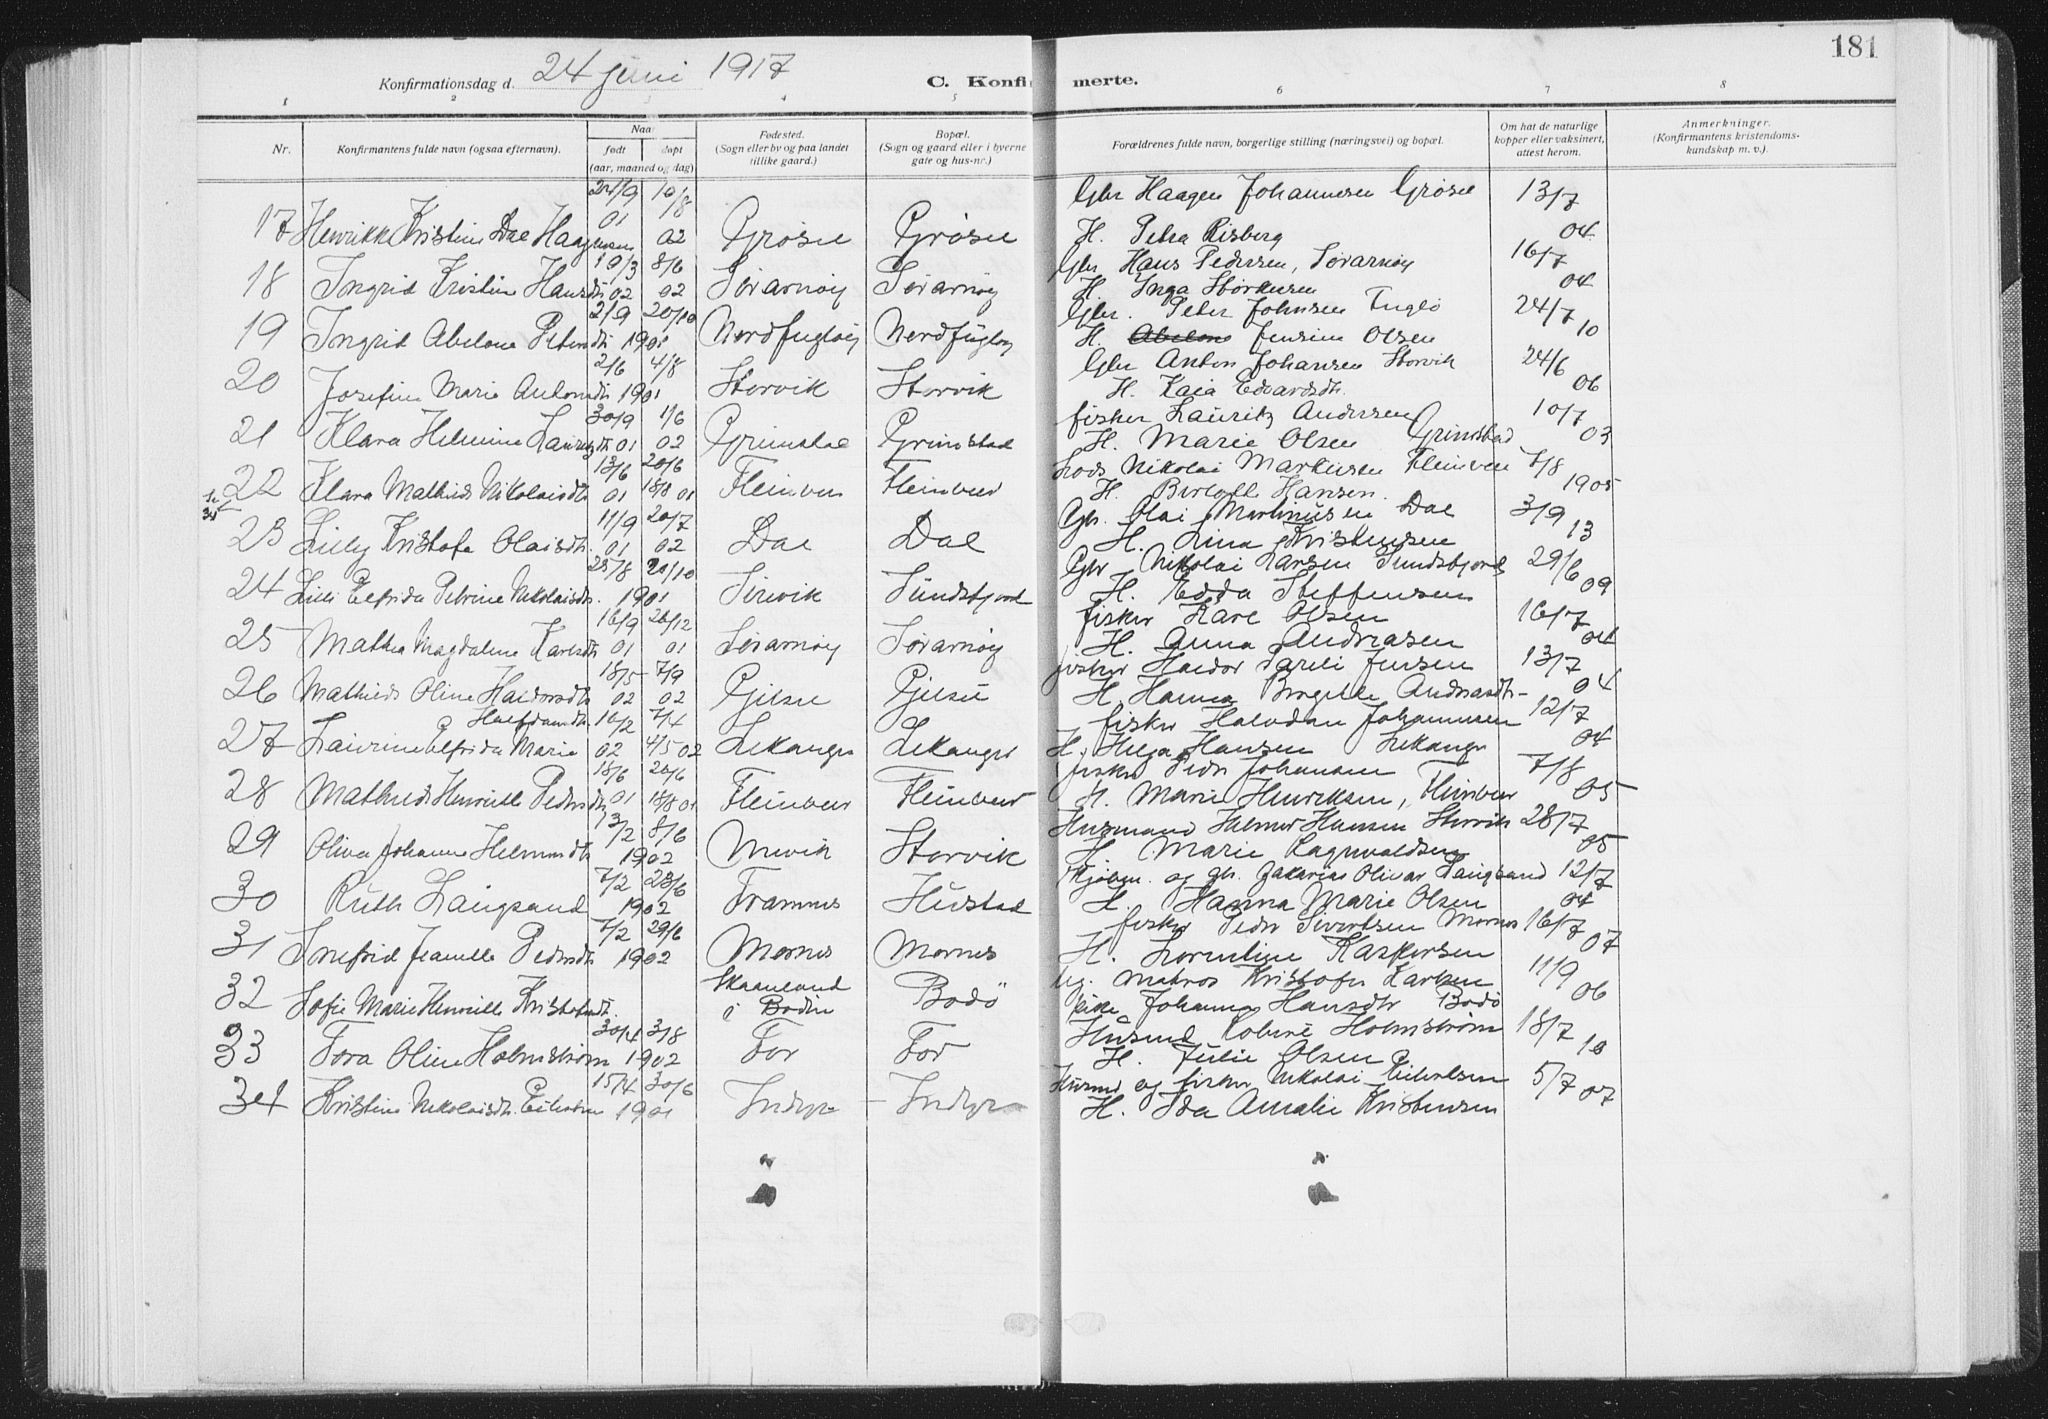 181
Konfirmationsdag d. 24 juni 1917
C. Konfirmerte.
1 2 3 4 5 6 7 8
Nr.
Konfirmantens fulde navn (ogsaa efternavn).
Naar
født
døpt
(aar, maaned og dag)
Fødested.
(Sogn eller by og paa landet
tillike gaard.)
Bopæl.
(Sogn og gaard eller i byerne
gate og hus-nr.)
Forældrenes fulde navn, borgerlige stilling (næringsvei) og bopæl.
Om hat de naturlige
kopper eller vaksinert,
attest herom.
Anmerkninger.
(Konfirmantens kristendoms-
kundskap m. v.).
24/9 10/8 Gbr Haagen Johannesen Grøse 13/7
17 Henrikke Kristine Dal Haagensen 01 02 Grøsee Grøsee H. Petra Risberg 04
19/3 8/6 Gbr Hans Pedersen, Sørarnøy 16/7
18 Ingrid Kristine Hansdtr 02 02 Sørarnøy Sørarnøy H. Inga Størkersen 04
2/9 20/10 Gbr. Peter Johnsen Fuglø 24/7
19 Ingrid Abelone Petersdtr 1901 Nordfugløy Nordfugløy H. Abelone Jensine Olsen 10
2/6 4/8 Gbr Anton Johansen Storvik 24/6
20 Josefine Marie Antonsdtr 1901 Storvik Storvik H. Kaia Edvardsdtr. 06
30/9 1/6 fisker Lauritz Andersen 10/7
21 Klara Helmine Lauritzdtr 01 02 Grimstad Grimstad H. Marie Olsen Grimstad 03
13/6 20/6 Lods Nikolai Markusen Fleinvær 7/8
22 Klara Mathilde Nikolaisdtr 01 18/8 01 Fleinvær Fleinvær H. Bergitte Hansen. 1905
11/9 20/7 Gbr. Olai Martinusen Dal 3/9
23 Lilly Kristofa Olaisdtr. 01 02 Dal Dal H. Lina Kristensen 13
25/8 20/10 Gbr Nikolai Larsen Sundsfjord 29/6
24 Lilli Elfrida Petrine Nikolaisdtr. 1901 Sørvik Sundsfjord H. Edda Steffensen 09
16/9 26/12 fisker Karl Olsen 16/7
25 Mathea Magdalene Karlsdtr 01 01 Sørarnøy Sørarnøy H. Anna Andreasen 04
18/5 7/9 fisker Haldor Pareli Jensen 13/7
26 Mathilde Oline Haldorsdtr 02 02 Gjelsee Gjelsee H. Hanna Bergitte Andreasdtr 04
Halfdansdtr. 10/2 7/4 fisker Halvdan Johannesen 12/7
27 Laurine Elfrida Marie 02 4/5 02 Lekanger Lekanger H. Helga Hansen Lekanger 04
18/6 20/6 fisker Peder Johansen 7/8
28 Mathilde Henriette Pedersdtr 01 18/8 01 Fleinvær Fleinvær H. Marie Henriksen, Fleinvær 05
13/2 8/6 Husmand Helmer Hansen Storvik 28/7
29 Oliva Johanne Helmersdtr 1902 Mevik Storvik H. Marie Ragnvaldsen 05
7/2 23/6 Kjøbm. og gbr. Zakarias Olivar Langsand 12/7
30 Ruth Langsand 1902 Framnes Hustad H. Hanna Marie Olsen 04
7/2 29/6 fisker Peder Sivertsen Mornes 16/7
31 Snefrid Jeanette Pedersdtr 1902 Mornes Mornes H. Lorentine Kaspersen 07
Skaanland Ug. matros Kristofer Larsen 11/9
32 Sofie Marie Henriette Kristofersdtr. i Bodin Bodø pike Johanna Hansdtr Bodø 06
30/4 3/8 Husmd Robert Holmstrøm 18/7
33 Tora Oline Holmstrøm 1902 For For H. Julie Olsen 10
15/4 30/6 Husmd og fisker Nikolai Eilertsen 5/7
34 Kristine Nikolaisdtr. Eilertsen 1901 Indyr Indyr H. Ida Amalie Kristensen 07